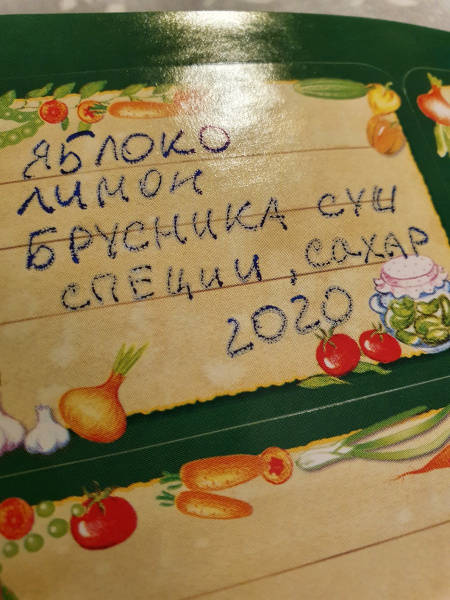 ЯБЛОКО
ЛИМОН
БРУСНИКА СУШ
СПЕЦИИ, САХАР
2020